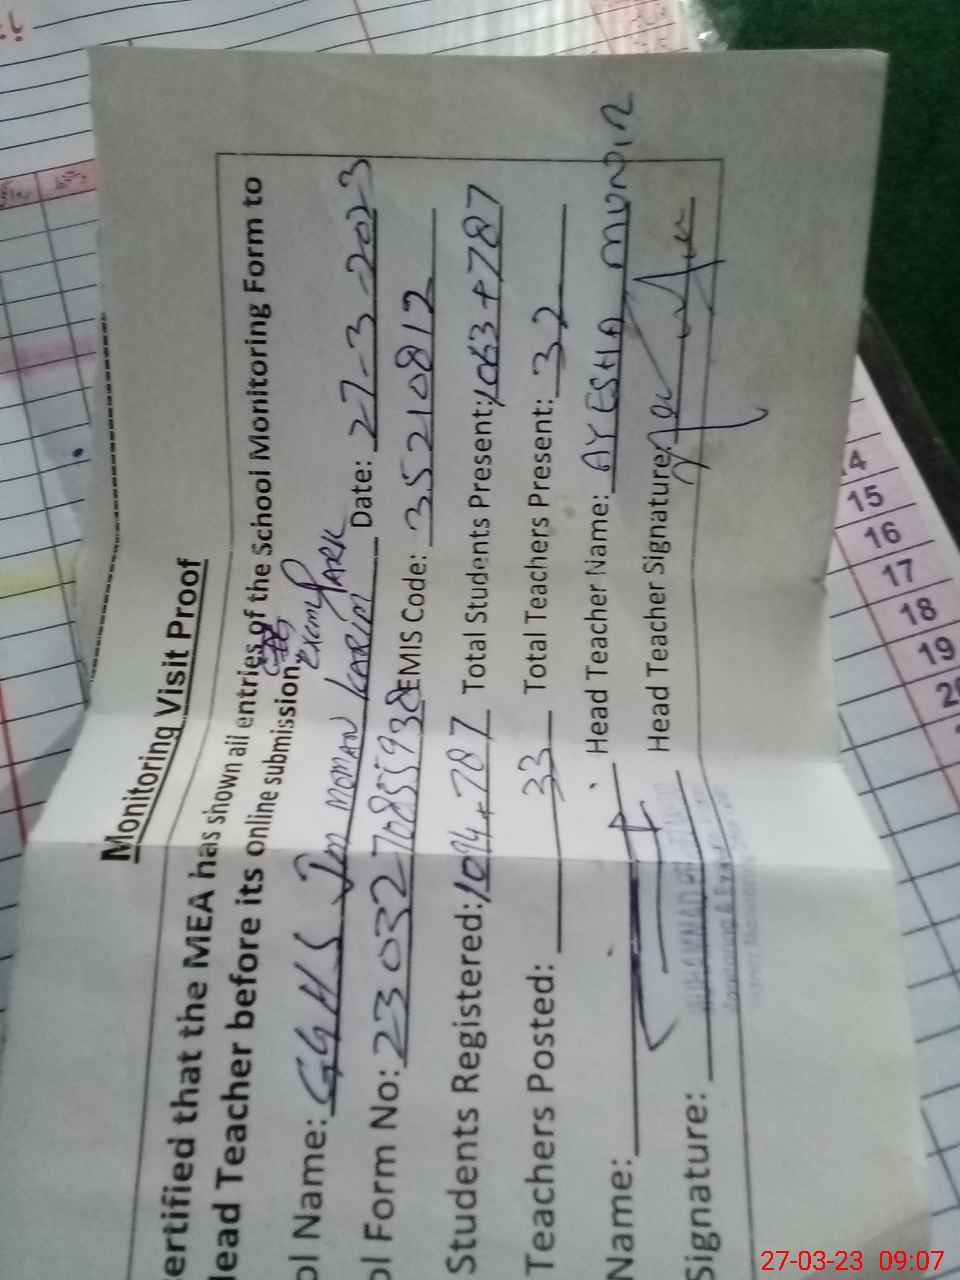 Monitoring Visit Proof
ertified that the MEA has shown all entries of the School Monitoring Form to
lead Teacher before its online submission.
ol Name: GGHS MOMAN KARIM PARK Date: 27-3-2023
ol Form No: 2303270855938 EMIS Code: 35210812
Students Registered: 1094+787 Total Students Present: 1063+787
Teachers Posted: 33 Total Teachers Present: 32
Name: Head Teacher Name: AYESHA MUNIR
Signature: Head Teacher Signature:
14
15
16
17
18
19
27-03-23 09:07